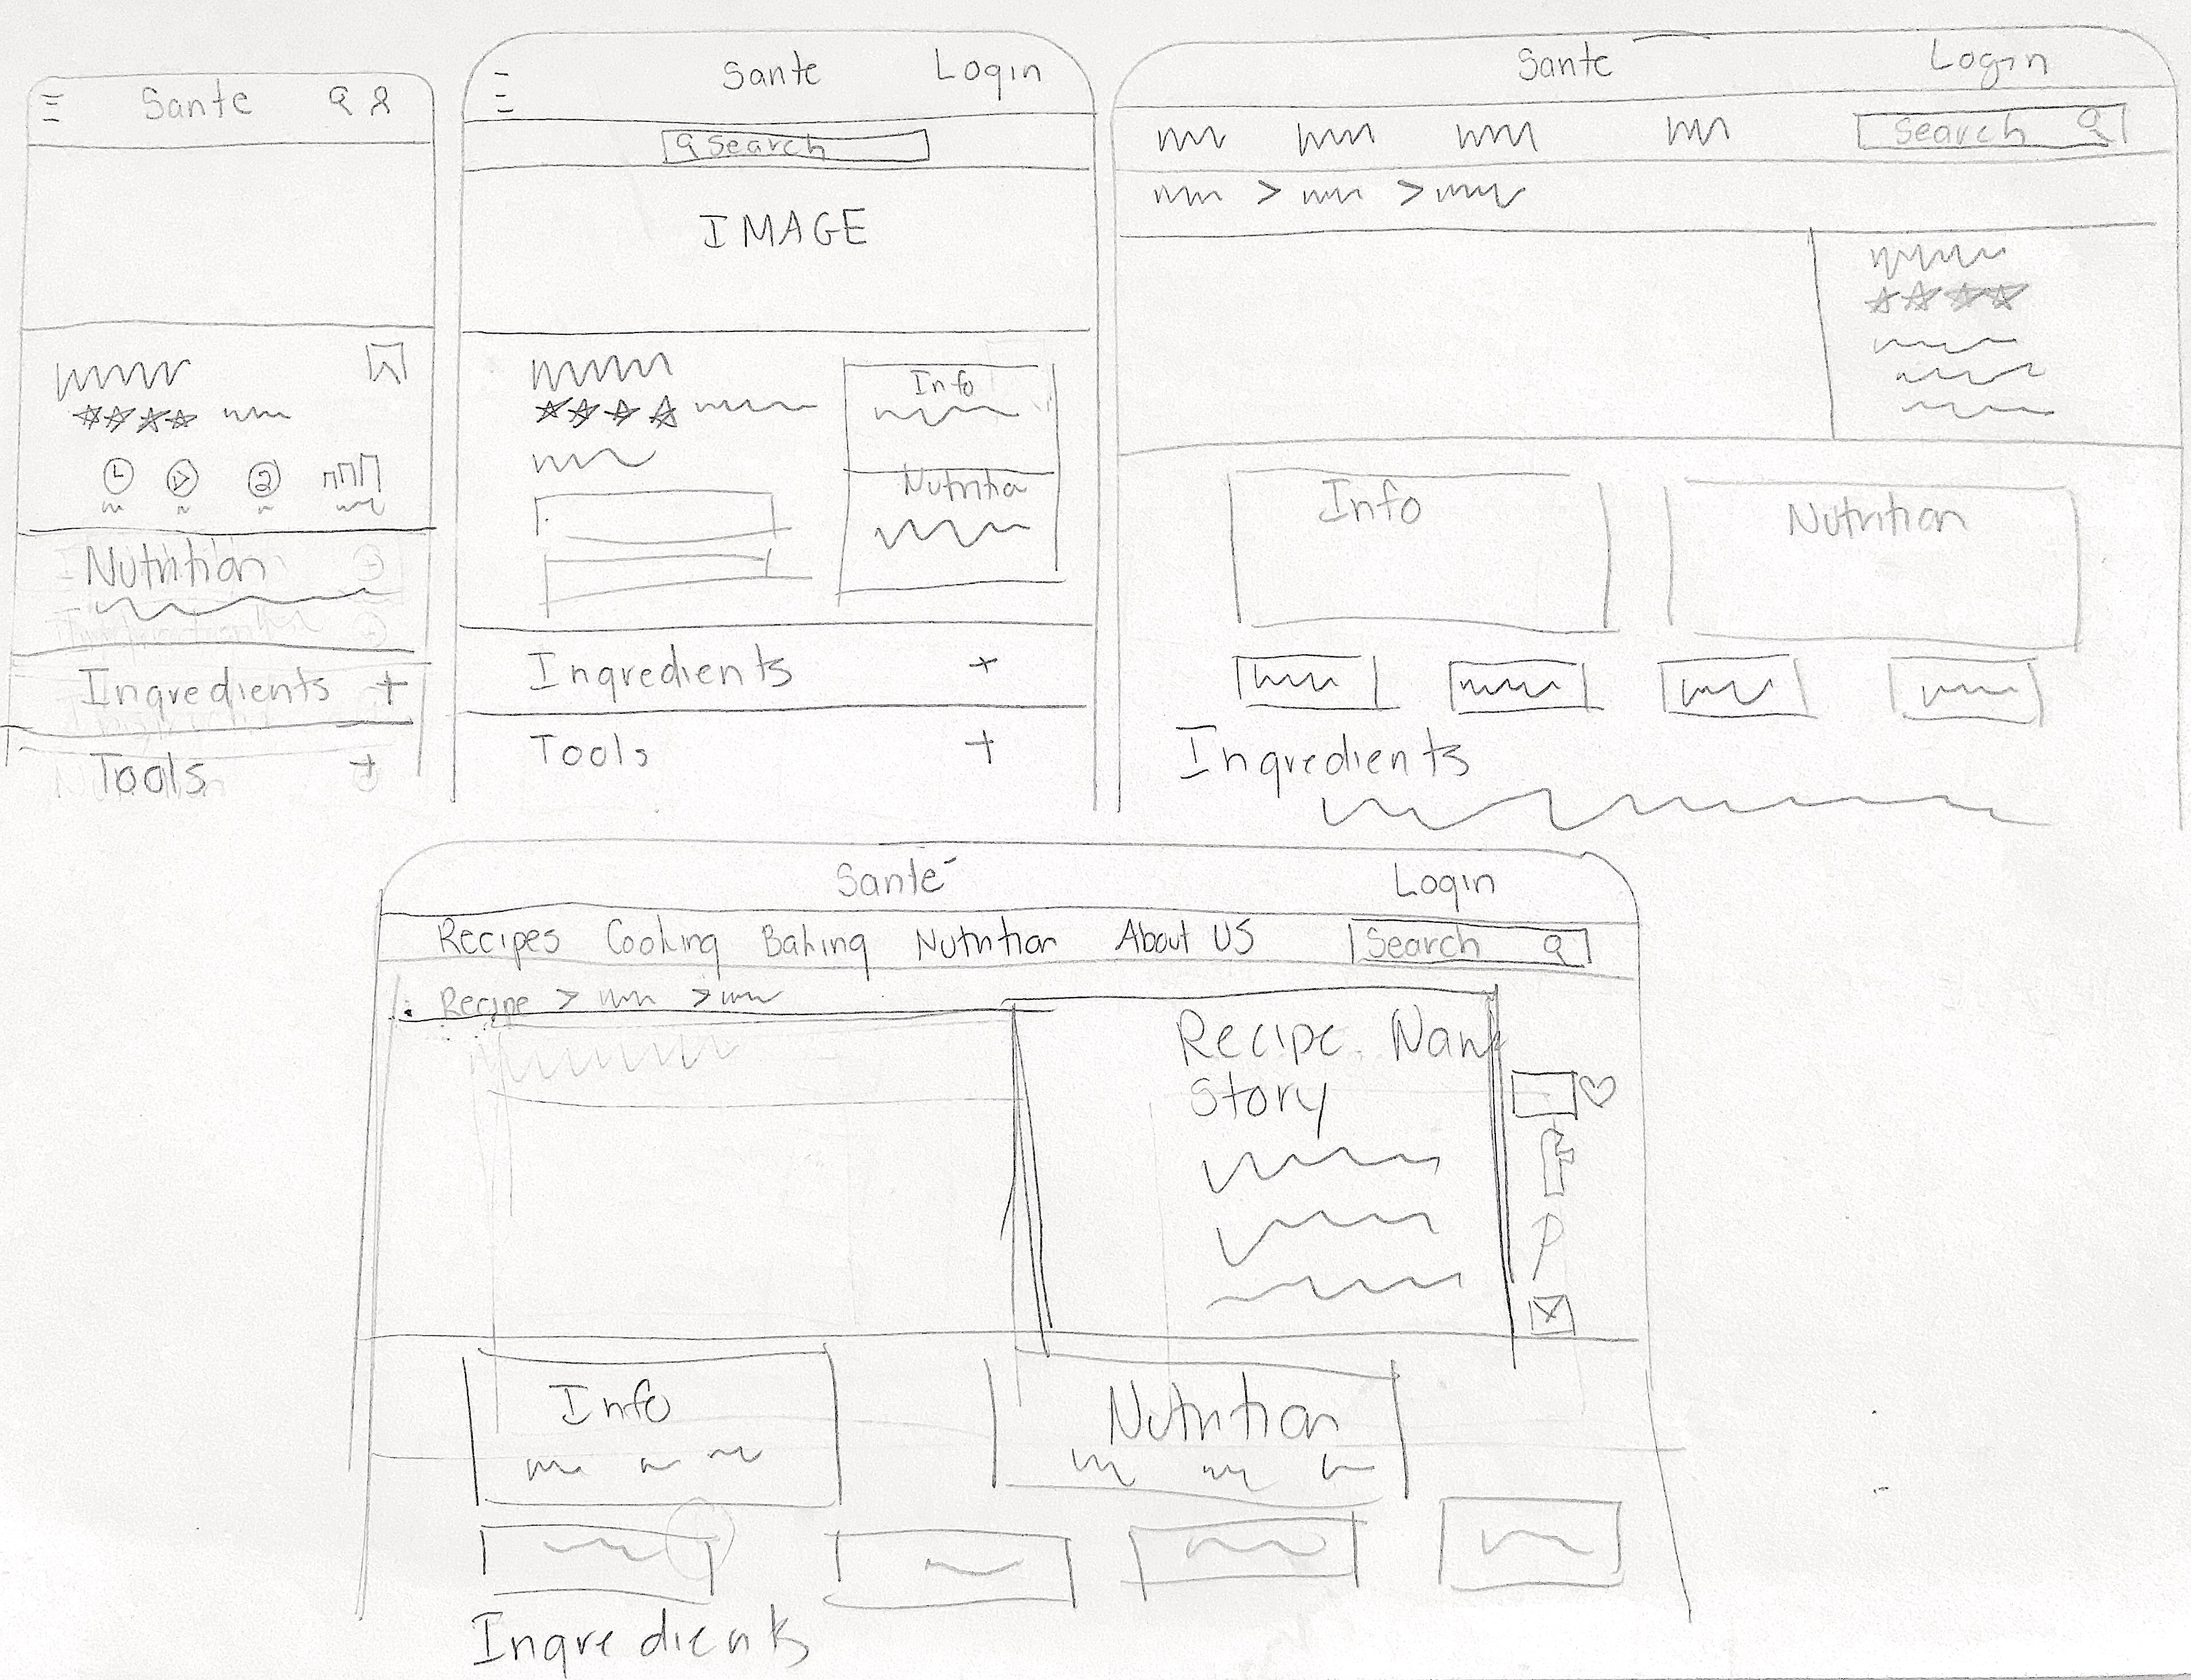 Sante
Nutrition
Ingredients +
Tools +
Sante Login
Search
IMAGE
Info
Nutrition
Ingredients +
Tools +
Sante Login
Search
Info Nutrition
Ingredients
Santé Login
Recipes Cooking Baking Nutrition About US Search
Recipe > >
Recipe Name
Story
Info Nutrition
Ingredients